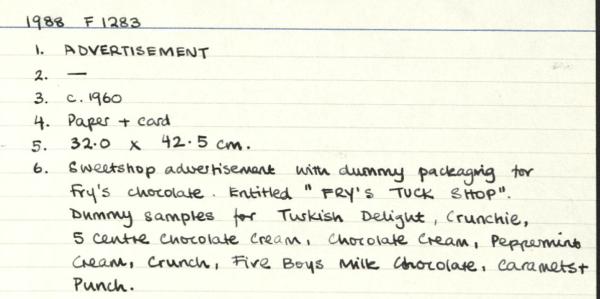 1988 F 1283
1. ADVERTISEMENT
2. —
3. c. 1960
4. Paper + card
5. 32.0 x 42.5 cm.
6. Sweetshop advertisement with dummy packaging for
Fry's chocolate. Entitled "FRY'S TUCK SHOP".
Dummy samples for Turkish Delight, Crunchie,
5 Centre Chocolate Cream, Chocolate Cream, Peppermint
Cream, Crunch, Five Boys Milk Chocolate, Caramets +
Punch.